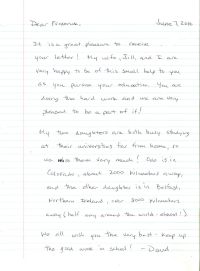 Dear Francine,    June 7, 2010
It is a great pleasure to receive
your letter! My wife, Jill, and I are
very happy to be of this small help to you
as you pursue your education. You are
doing the hard work and we are very
pleased to be a part of it!
My two daughters are both busy studying
at their universities far from home, so
we miss them very much! One is in
Colorado, about 2000 kilometers away,
and the other daughter is in Belfast,
Northern Ireland, over 8000 kilometers
away (half way around the world - almost!).
We all wish you the very best - keep up
the good work in school! - David